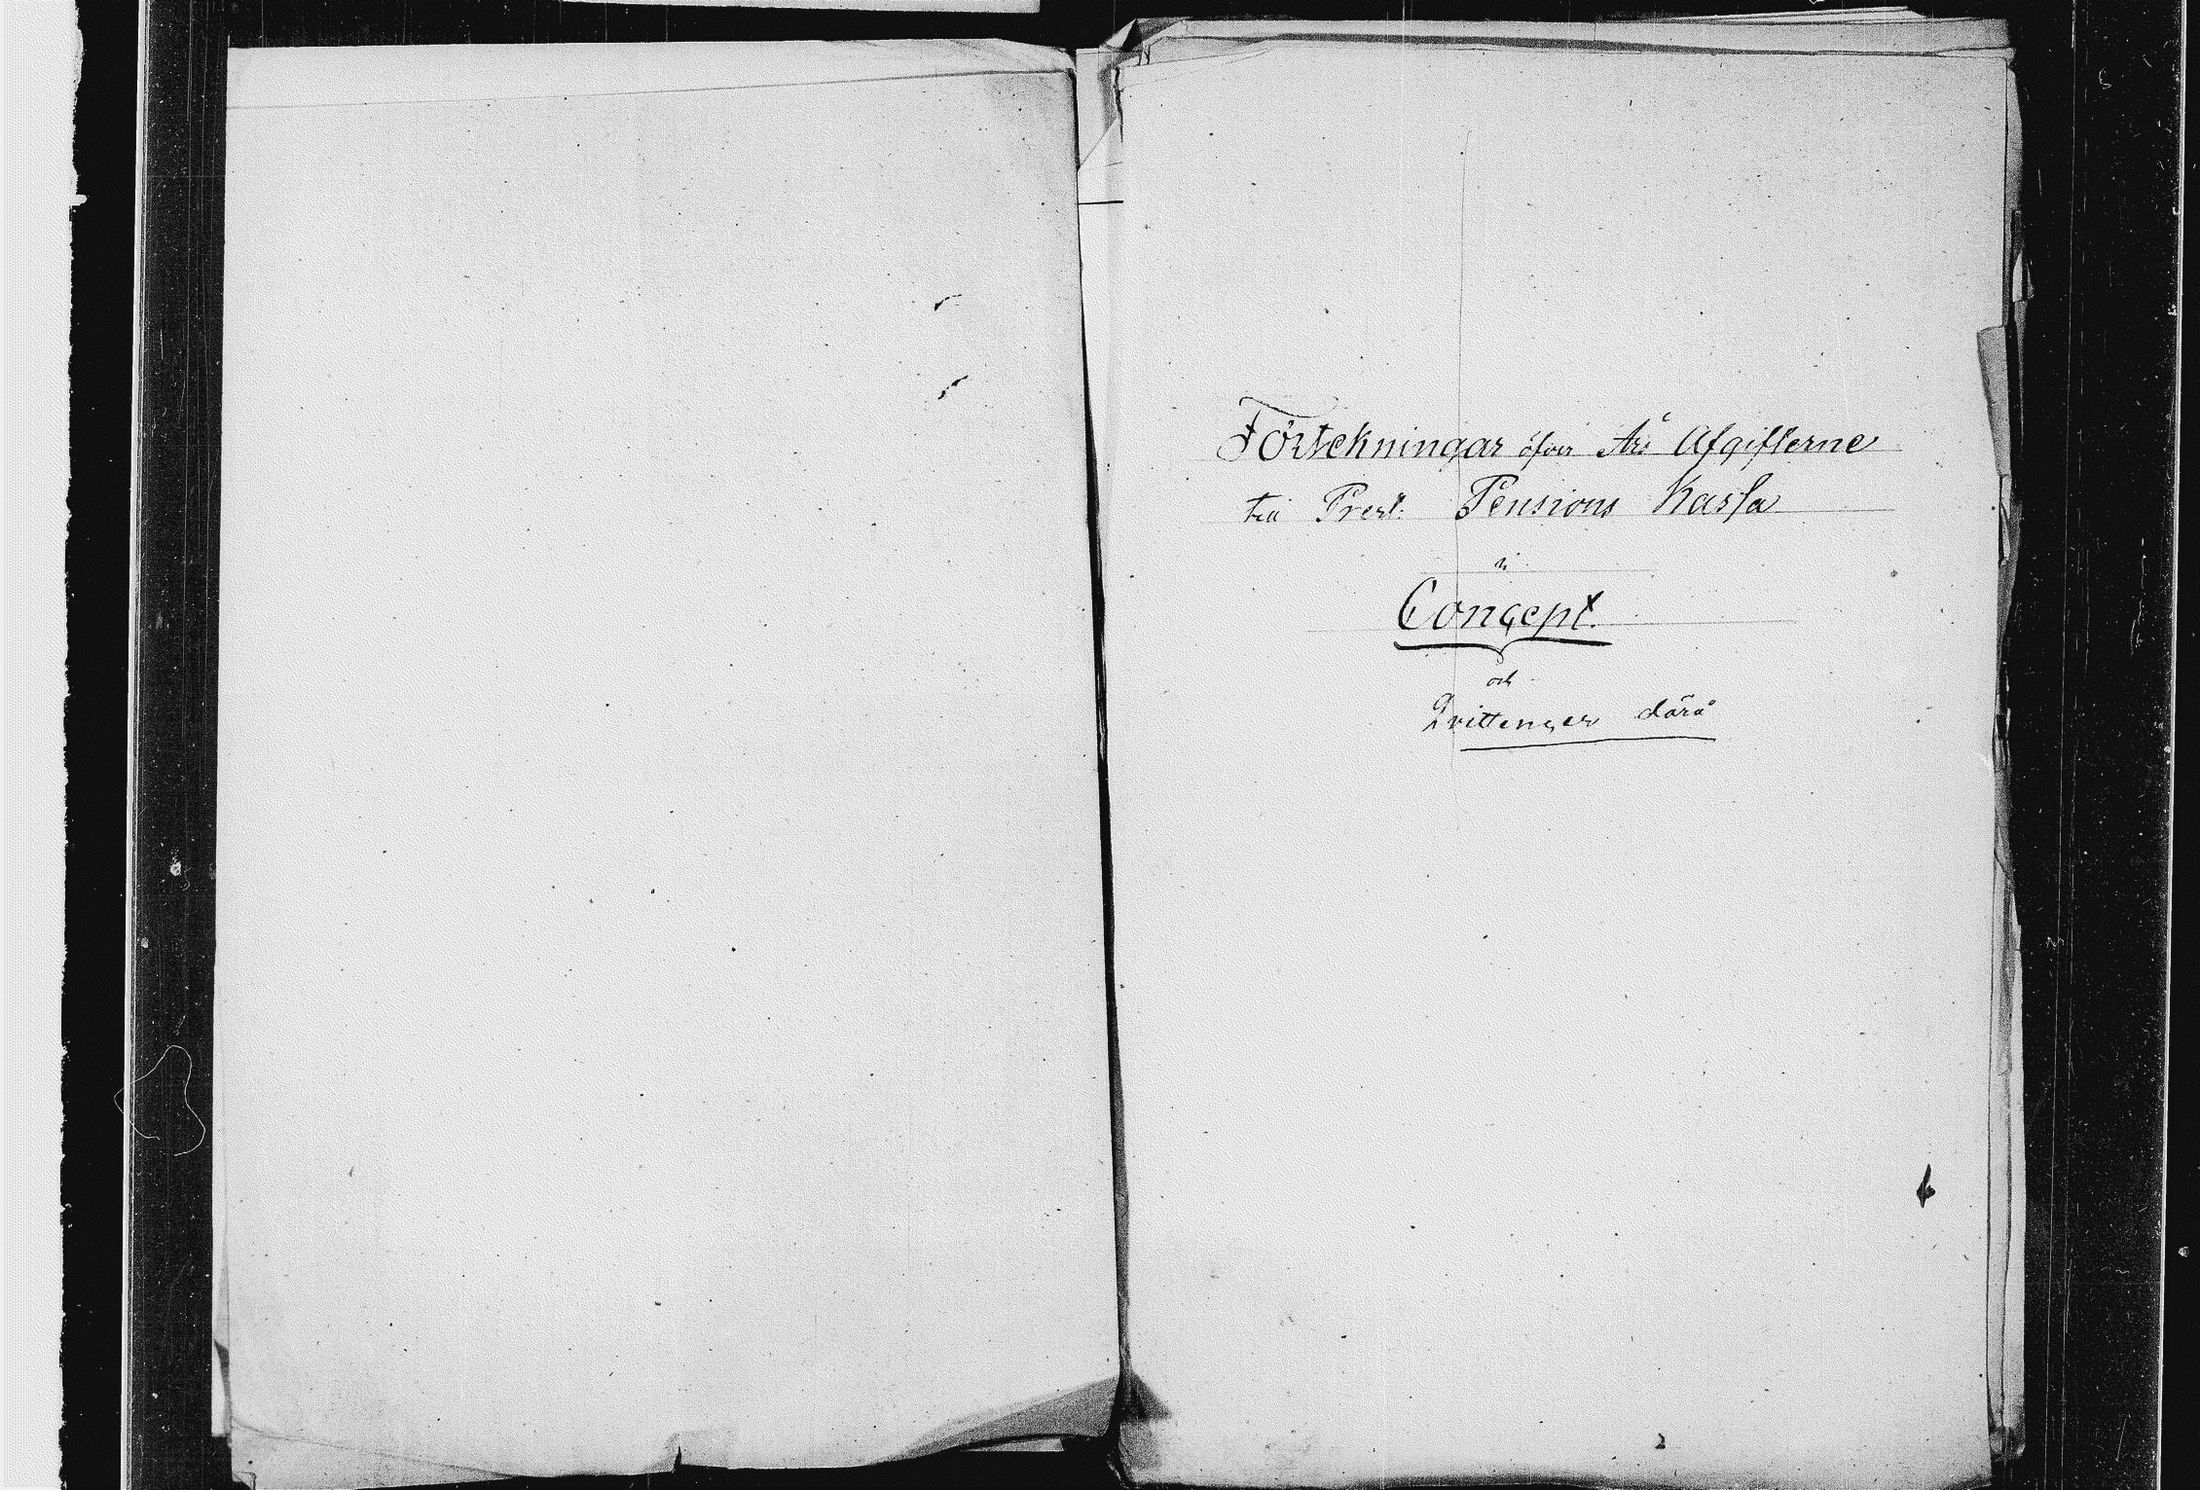 Förtekningar öfver Års Afgifterne
till Prest. Pensions Kassa
i
Concept.
och
Qvittenser därå